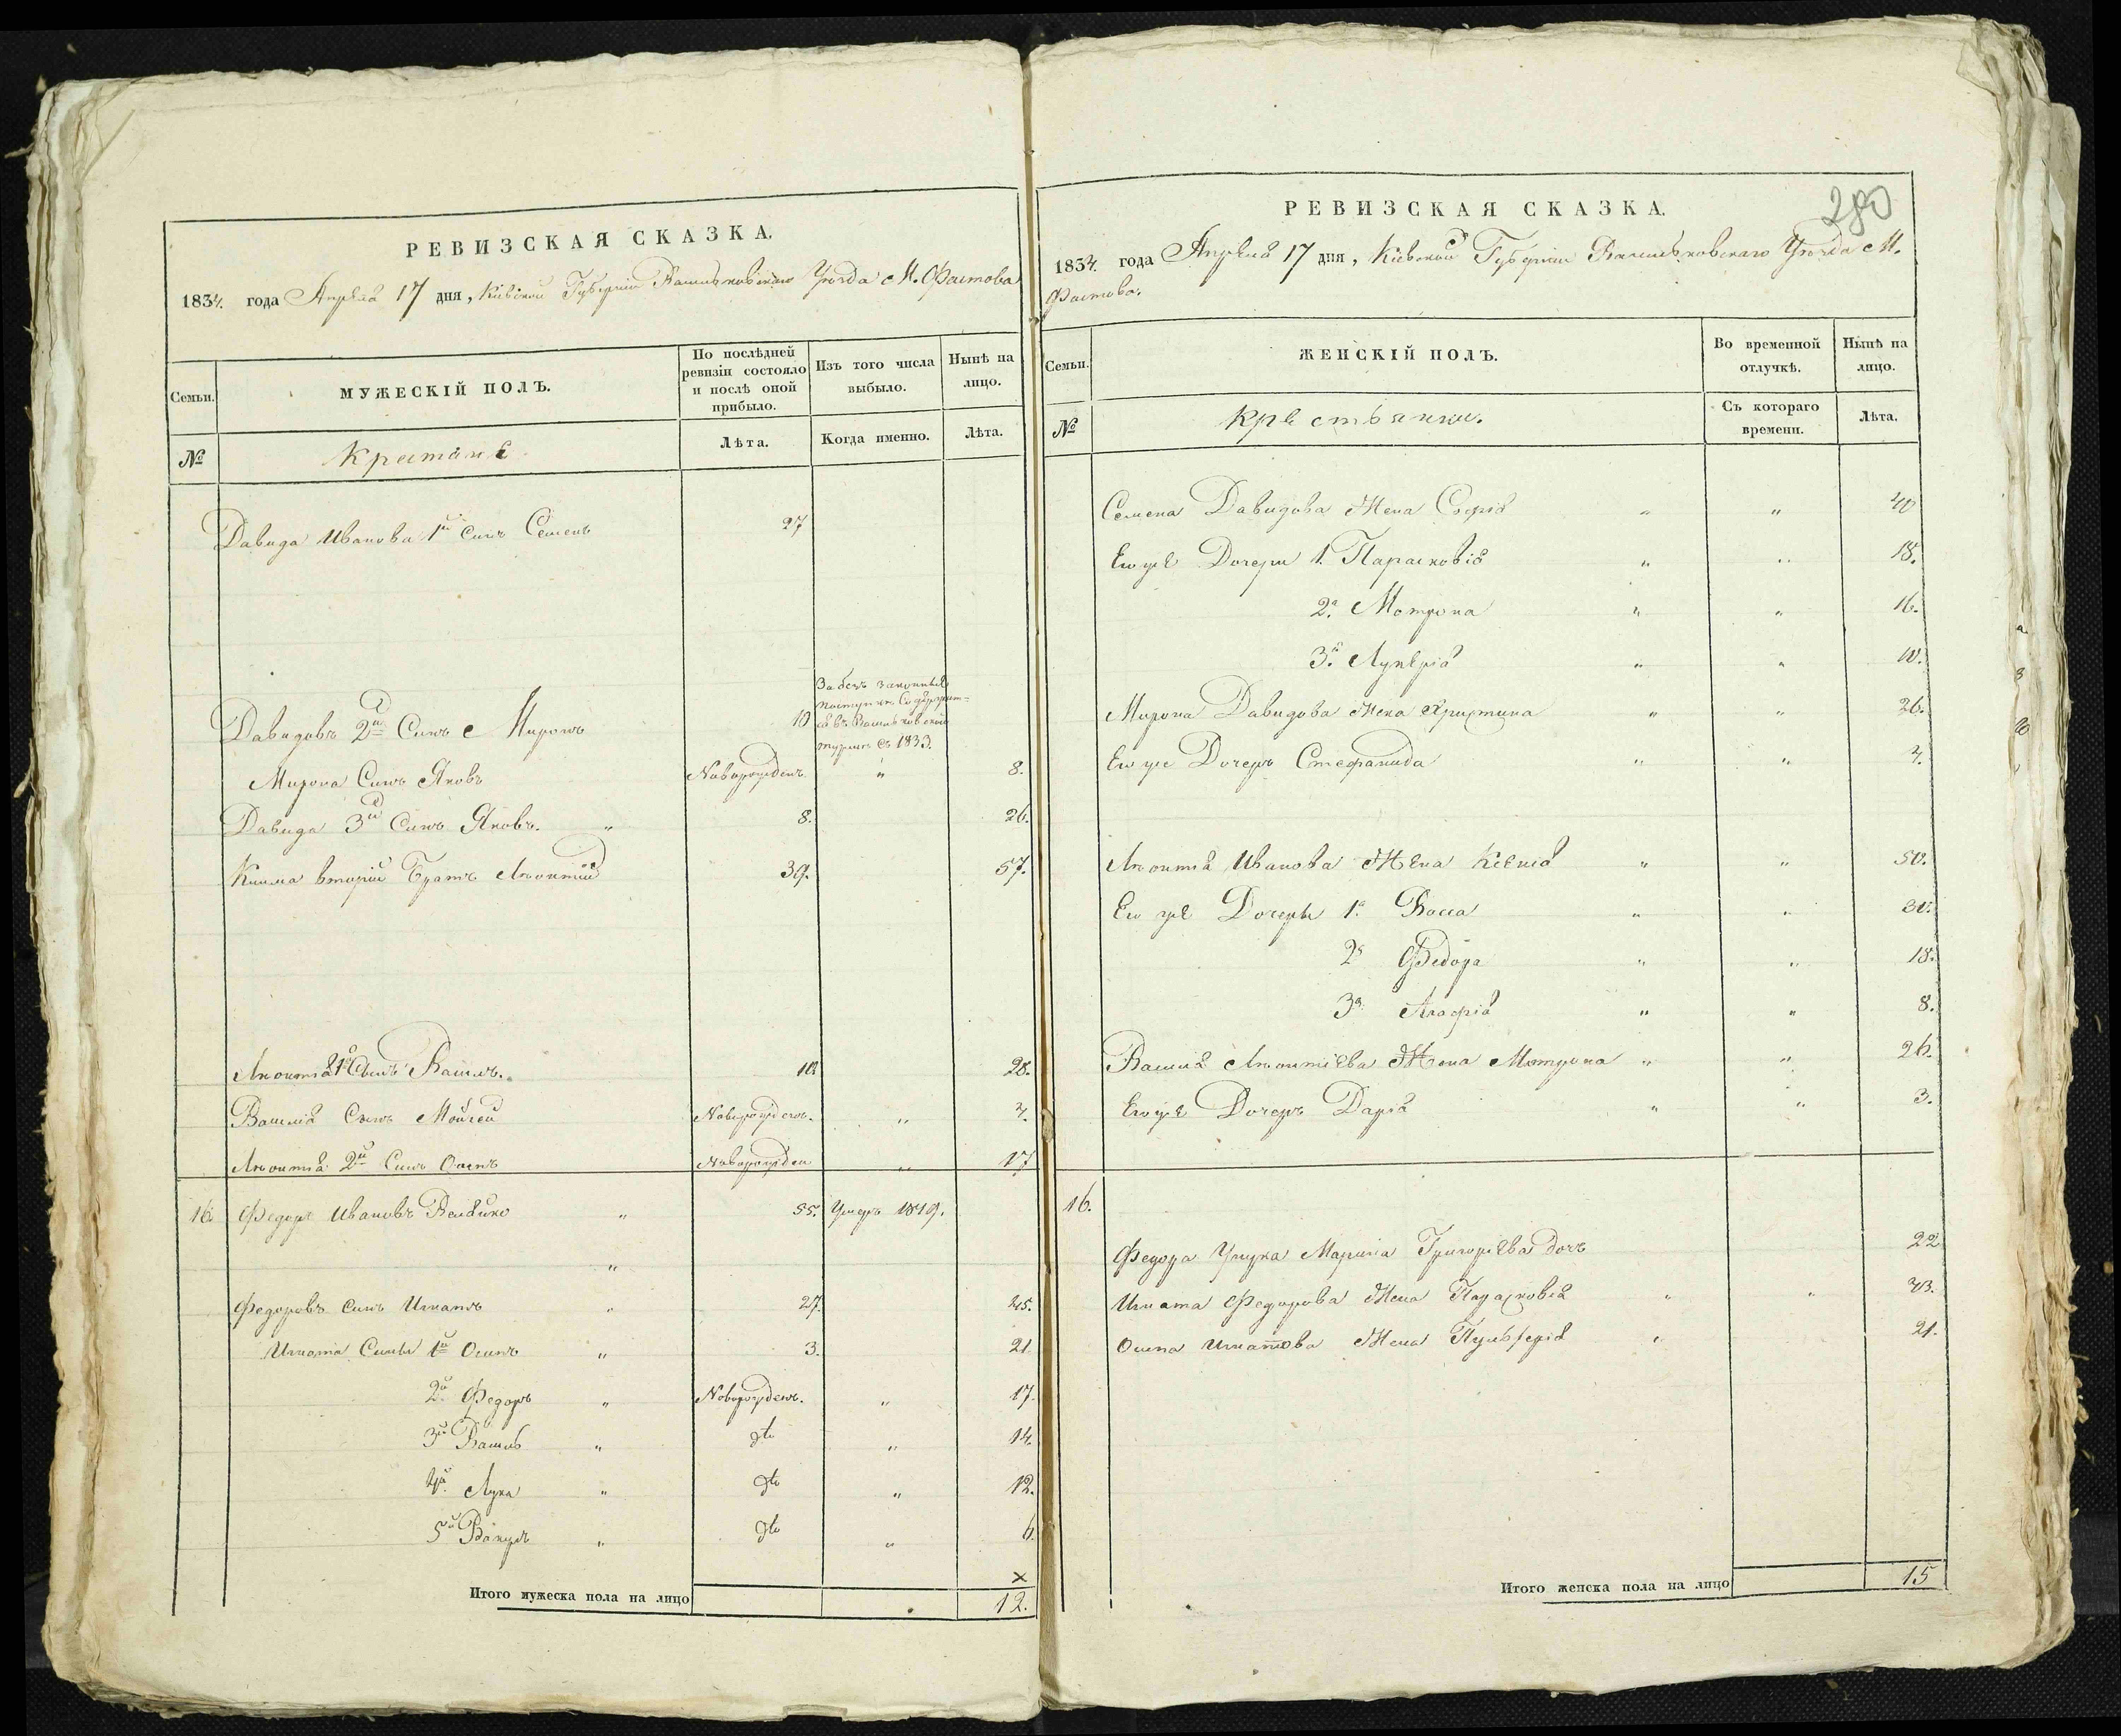 РЕВИЗСКАЯ СКАЗКА.
1834. года Апреля 17 дня, Кіевской Губерніи Васильковскаго Уѣзда М. Фастова
Семьи.
МУЖЕСКІЙ ПОЛЪ.
По послѣдней ревизіи состояло и послѣ оной прибыло.
Изъ того числа выбыло.
Нынѣ на лицо.
№
Крестяне
Лѣта.
Когда именно.
Лѣта.
Давида Иванова 1й Синъ Семенъ 27
За безъ законные поступки Содержит-
ся въ Васильковской
турми съ 1833.
Давидовъ 2й Синъ Миронъ 10
Мирона Синъ Яковъ Новорожденъ " 8.
Давида 3й Синъ Яковъ. " 8. 26.
Клима вторій Братъ Леонтій 39. 57.
Леонтія 1й Синъ Василь. 10. 28.
Василія Синъ Мойсей Новорожденъ. " 4.
Леонтія 2й Синъ Осипъ Новорожден " 17
16. Федоръ Ивановъ " 55. Умеръ 1819.
"
Федоровъ синъ Игнатъ " 27. 45.
Игната Сины 1й Осипъ " 3. 21
2й Федоръ " Новорожденъ. " 17.
3й Василь " дто " 14.
4й Лука " дто " 12.
5й Вакулъ " дто " 6.
×
Итого мужеска пола на лицо 12.
280
РЕВИЗСКАЯ СКАЗКА.
1834. года Апреля 17 дня, Кіевской Губерніи Васильковскаго Уѣзда М.
Фастова.
Семьи.
ЖЕНСКІЙ ПОЛЪ.
Во временной отлучкѣ.
Нынѣ на лицо.
№
Крестьянки.
Съ котораго времени.
Лѣта.
Семена Давидова Жена Софія " " 40
Его же Дочери 1. Парасковія " " 18.
2а. Мотрона " " 16.
3я. Лукерія " " 10.
Мирона Давидова Жена Христина " " 26.
Его же Дочеръ Стефанида " " 4.
Леонтія Иванова Жена Ксенія " " 50.
Его же Дочеры 1а. Васса " " 30.
2а Федора " " 18.
3а. Агафія " " 8.
Василія Леонтіева Жена Мотрона " " 26.
Его же Дочеръ Дарія " " 3.
16.
Федора Унука Марина Григоріева дочъ 22
Игната Федорова Жена Парасковія " " 43.
Осипа Игнатова Жена Пульхерія " 21.
Итого женска пола на лицо 15